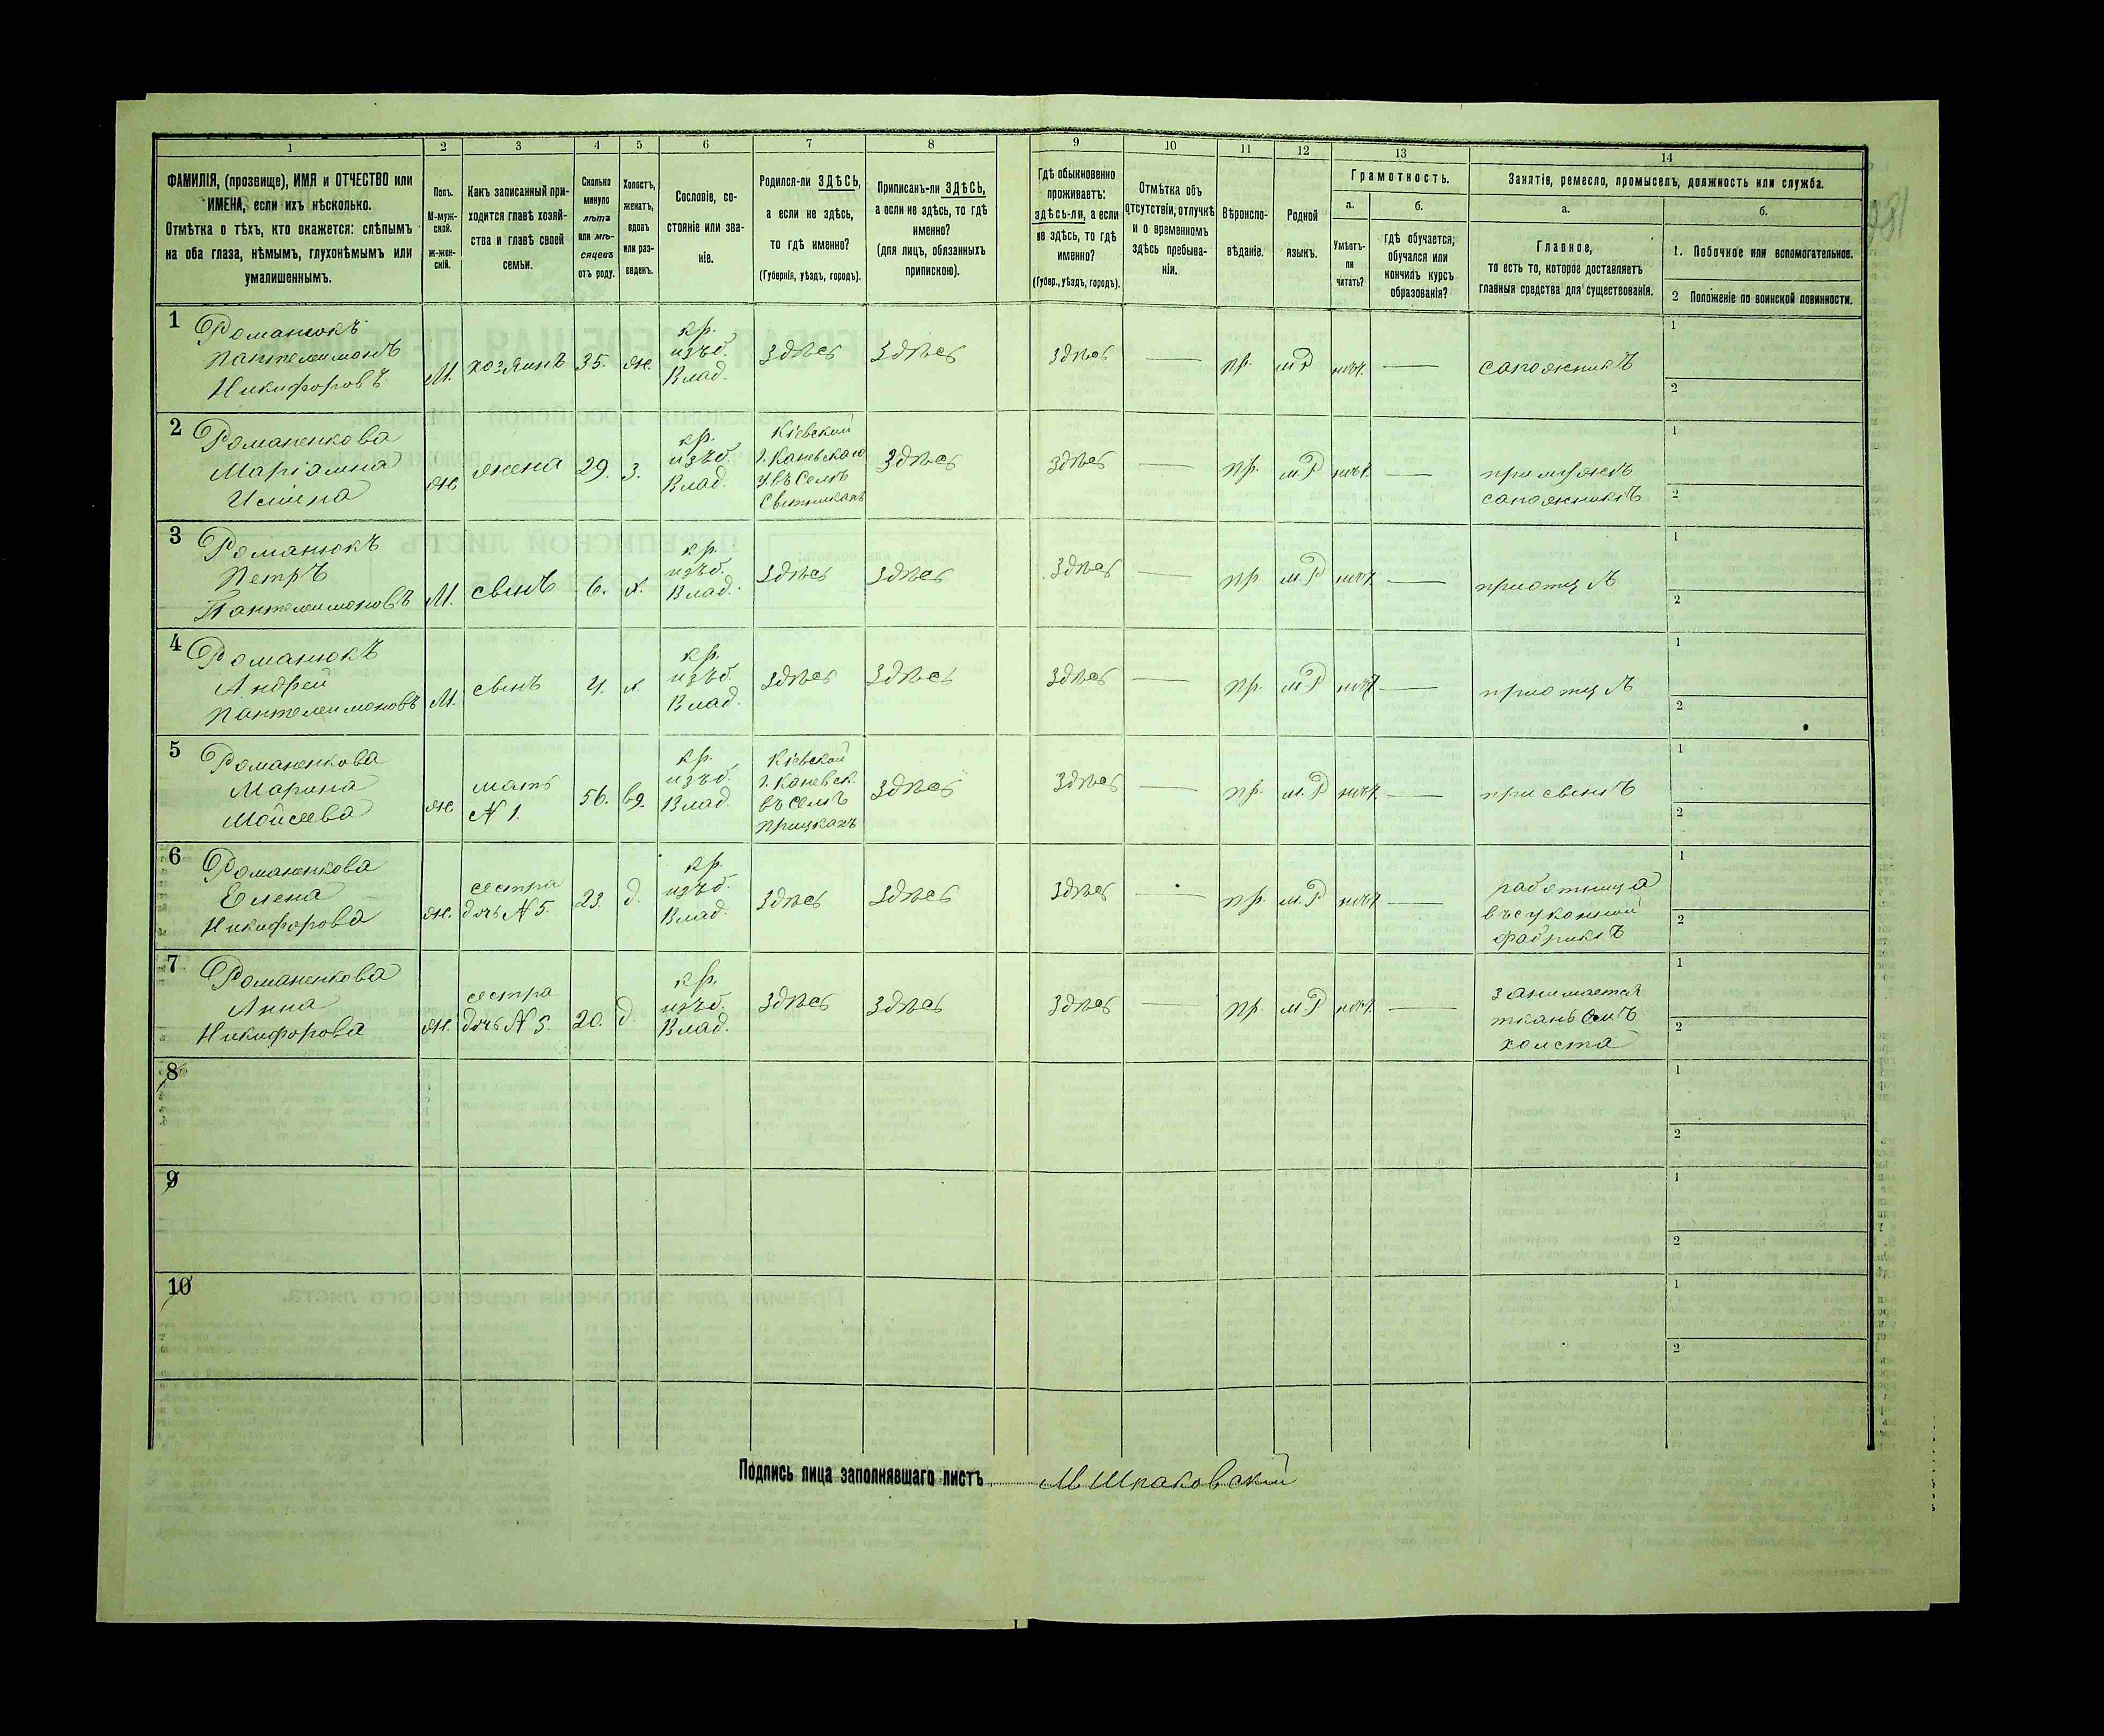 1 2 3 4 5 6 7 8 9 10 11 12 13 14
ФАМИЛІЯ, (прозвище), ИМЯ и ОТЧЕСТВО или
ИМЕНА, если ихъ нѣсколько.
Отмѣтка о тѣхъ, кто окажется: слѣпымъ
на оба глаза, нѣмымъ, глухонѣмымъ или
умалишеннымъ.
Полъ.
М-муж-
ской.
ж-жен-
скій.
Какъ записанный при-
ходится главѣ хозяй-
ства и главѣ своей
семьи.
Сколько
минуло
лѣтъ
или мѣ-
сяцевъ
отъ роду.
Холостъ,
женатъ,
вдовъ
или раз-
веденъ.
Сословіе, со-
стояніе или зва-
ніе.
Родился-ли ЗДѢСЬ,
а если не здѣсь,
то гдѣ именно?
(Губернія, уѣздъ, городъ).
Приписанъ-ли ЗДѢСЬ,
а если не здѣсь, то гдѣ
именно?
(для лицъ, обязанныхъ
припискою).
Гдѣ обыкновенно
проживаетъ:
здѣсь-ли, а если
не здѣсь, то гдѣ
именно?
(Губер., уѣздъ, городъ).
Отмѣтка объ
отсутствіи, отлучкѣ
и о временномъ
здѣсь пребыва-
ніи.
Вѣроиспо-
вѣданіе.
Родной
языкъ.
Грамотность.
а.
Умѣетъ-
ли
читать?
б.
гдѣ обучается,
обучался или
кончилъ курсъ
образованія?
Занятія, ремесло, промыселъ, должность или служба.
а.
Главное,
то есть то, которое доставляетъ
главныя средства для существованія.
б.
1. Побочное или вспомогательное.
2 Положеніе по воинской повинности.
1
Романюкъ
Пантелеимонъ
Никифоровъ
М.
хозяинъ
35.
ж.
кр.
изъб.
Влад.
Здѣсь
Здѣсь
Здѣсь
—
пр.
мР
нѣт.
—
сапожникъ
1
2
2
Романенкова
Маріамна
ж.
жена
29.
З.
кр.
изъб.
Влад.
Кіевской
г. Каневскаго
у. въ Селѣ
Здѣсь
Здѣсь
—
пр.
мР
нѣт.
—
при мужѣ
сапожникѣ
1
2
3
Романюкъ
Петръ
Пантелеимоновъ
М.
сынъ
6.
х.
кр.
изъб.
Влад.
Здѣсь
Здѣсь
Здѣсь
—
пр.
м.Р
нѣт.
—
при отцѣ
1
2
4
Романюкъ
Андрей
Пантелеимоновъ
М.
сынъ
4.
х.
кр.
изъб.
Влад.
Здѣсь
Здѣсь
Здѣсь
—
пр.
мР
нѣт
—
при отцѣ
1
2
5
Романенкова
Марина
Мойсеева
ж.
мать
N 1.
56.
вд.
кр.
изъб.
Влад.
Кіевской
г. Каневск.
въ Селѣ
Здѣсь
Здѣсь
—
пр.
м.Р
нѣт.
—
при сынѣ
1
2
6
Романенкова
Елена
Никифорова
ж.
сестра
дочь N 5.
23.
д.
кр.
изъб.
Влад.
Здѣсь
Здѣсь
Здѣсь
—
пр.
м.Р
нѣт.
—
работница
въ суконной
фабрикѣ
1
2
7
Романенкова
Анна
Никифорова
ж.
сестра
дочь N 5.
20.
д.
кр.
изъб.
Влад.
Здѣсь
Здѣсь
Здѣсь
—
пр.
м.Р
нѣт.
—
занимается
тканьемъ
холста
1
2
8
1
2
9
1
2
10
1
2
Подпись лица заполнявшаго листъ